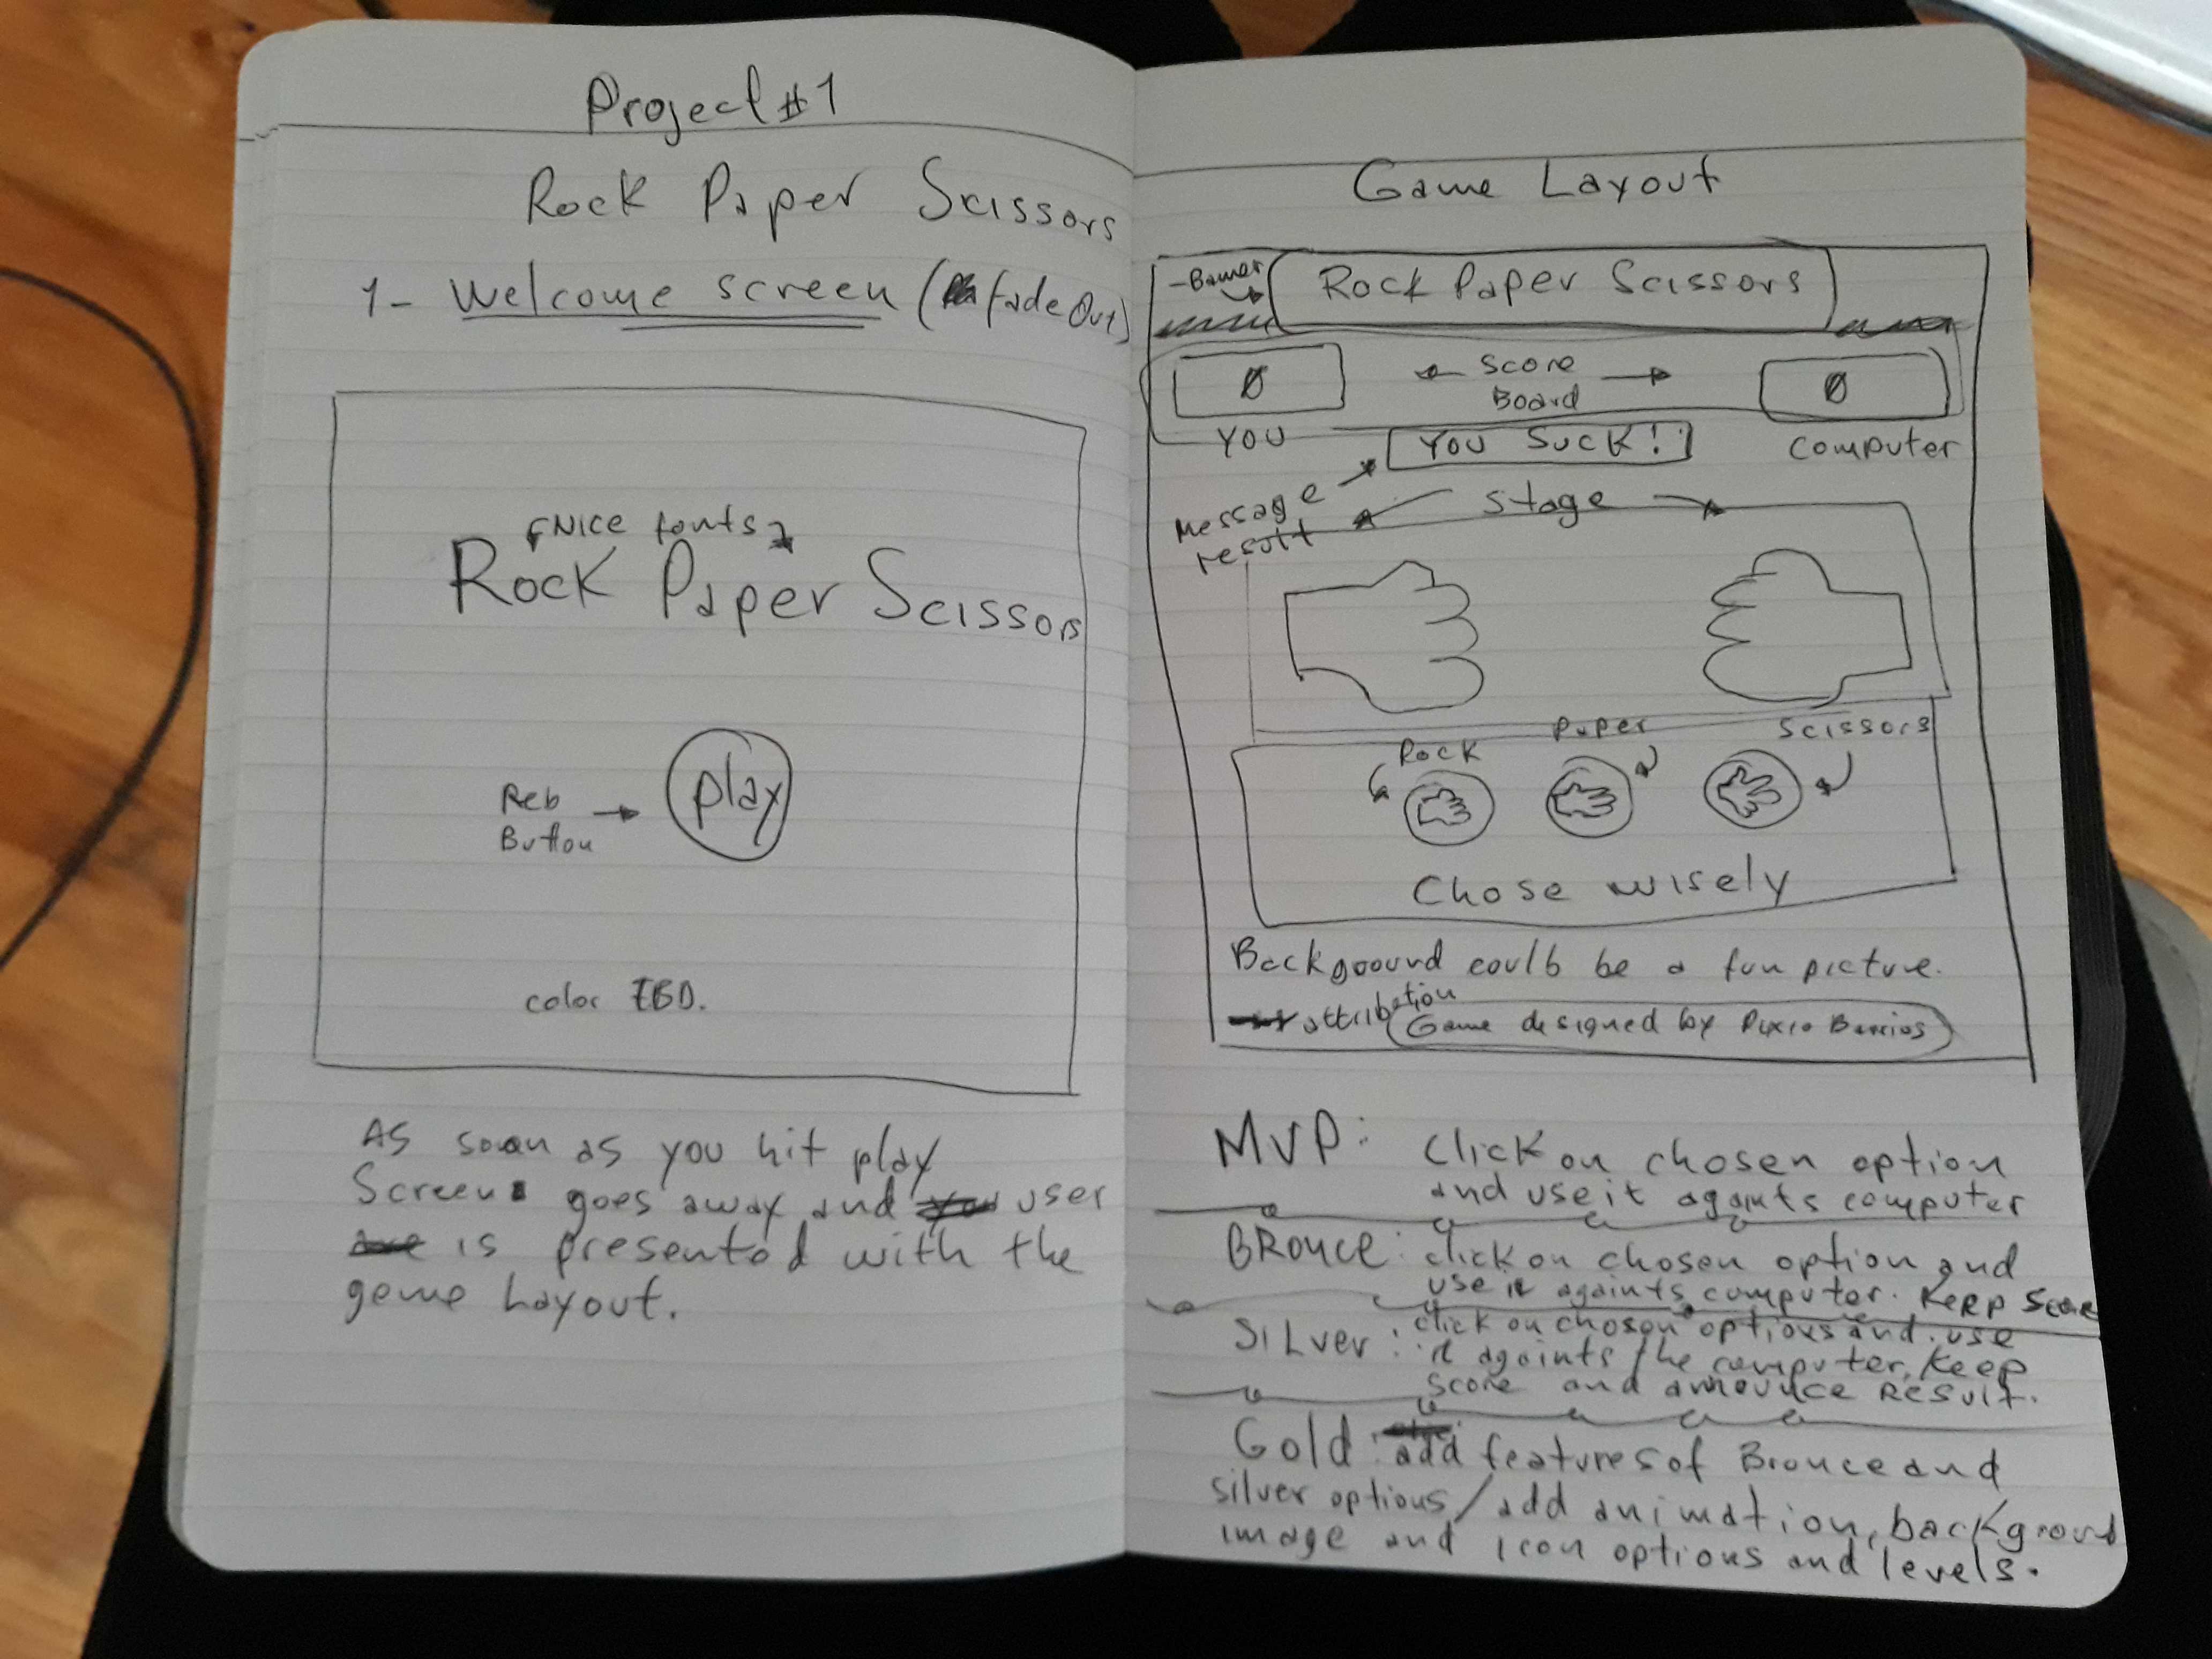 Project #1
Rock Paper Scissors
1- Welcome screen (fadeOut)
Nice fonts
Rock Paper Scissors
Reb
Button
play
color TBD.
As soon as you hit play
Screen goes away and user
is presented with the
game Layout.
Game Layout
-Banner
Rock Paper Scissors
0
Score
Board
0
YOU
YOU SUCK!
Computer
Message
result
Stage
Rock
Paper
Scissors
Chose wisely
Backgroound coulb be a fun picture.
attribution
Game designed by Barrios
MVP: Click on chosen option
and use it againts computer
BRonce: click on chosen option and
use it againts computer. Keep Score
SiLver: click on chosen options and use
it againts the computer, Keep
score and announce Result.
Gold: add features of Bronce and
silver options/add animation, background
image and icon options and levels.